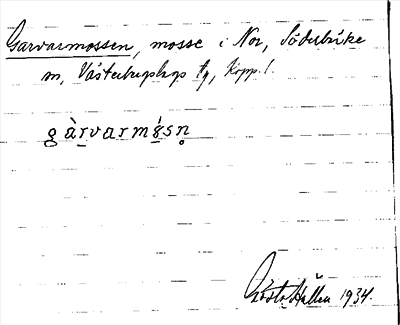 Garvarmossen, mosse i Nor, Söderbärke
sn, Västerbergslags fg, Kopp. l.
gàrvarmǿsn̥
Gösta Hallén 1934.